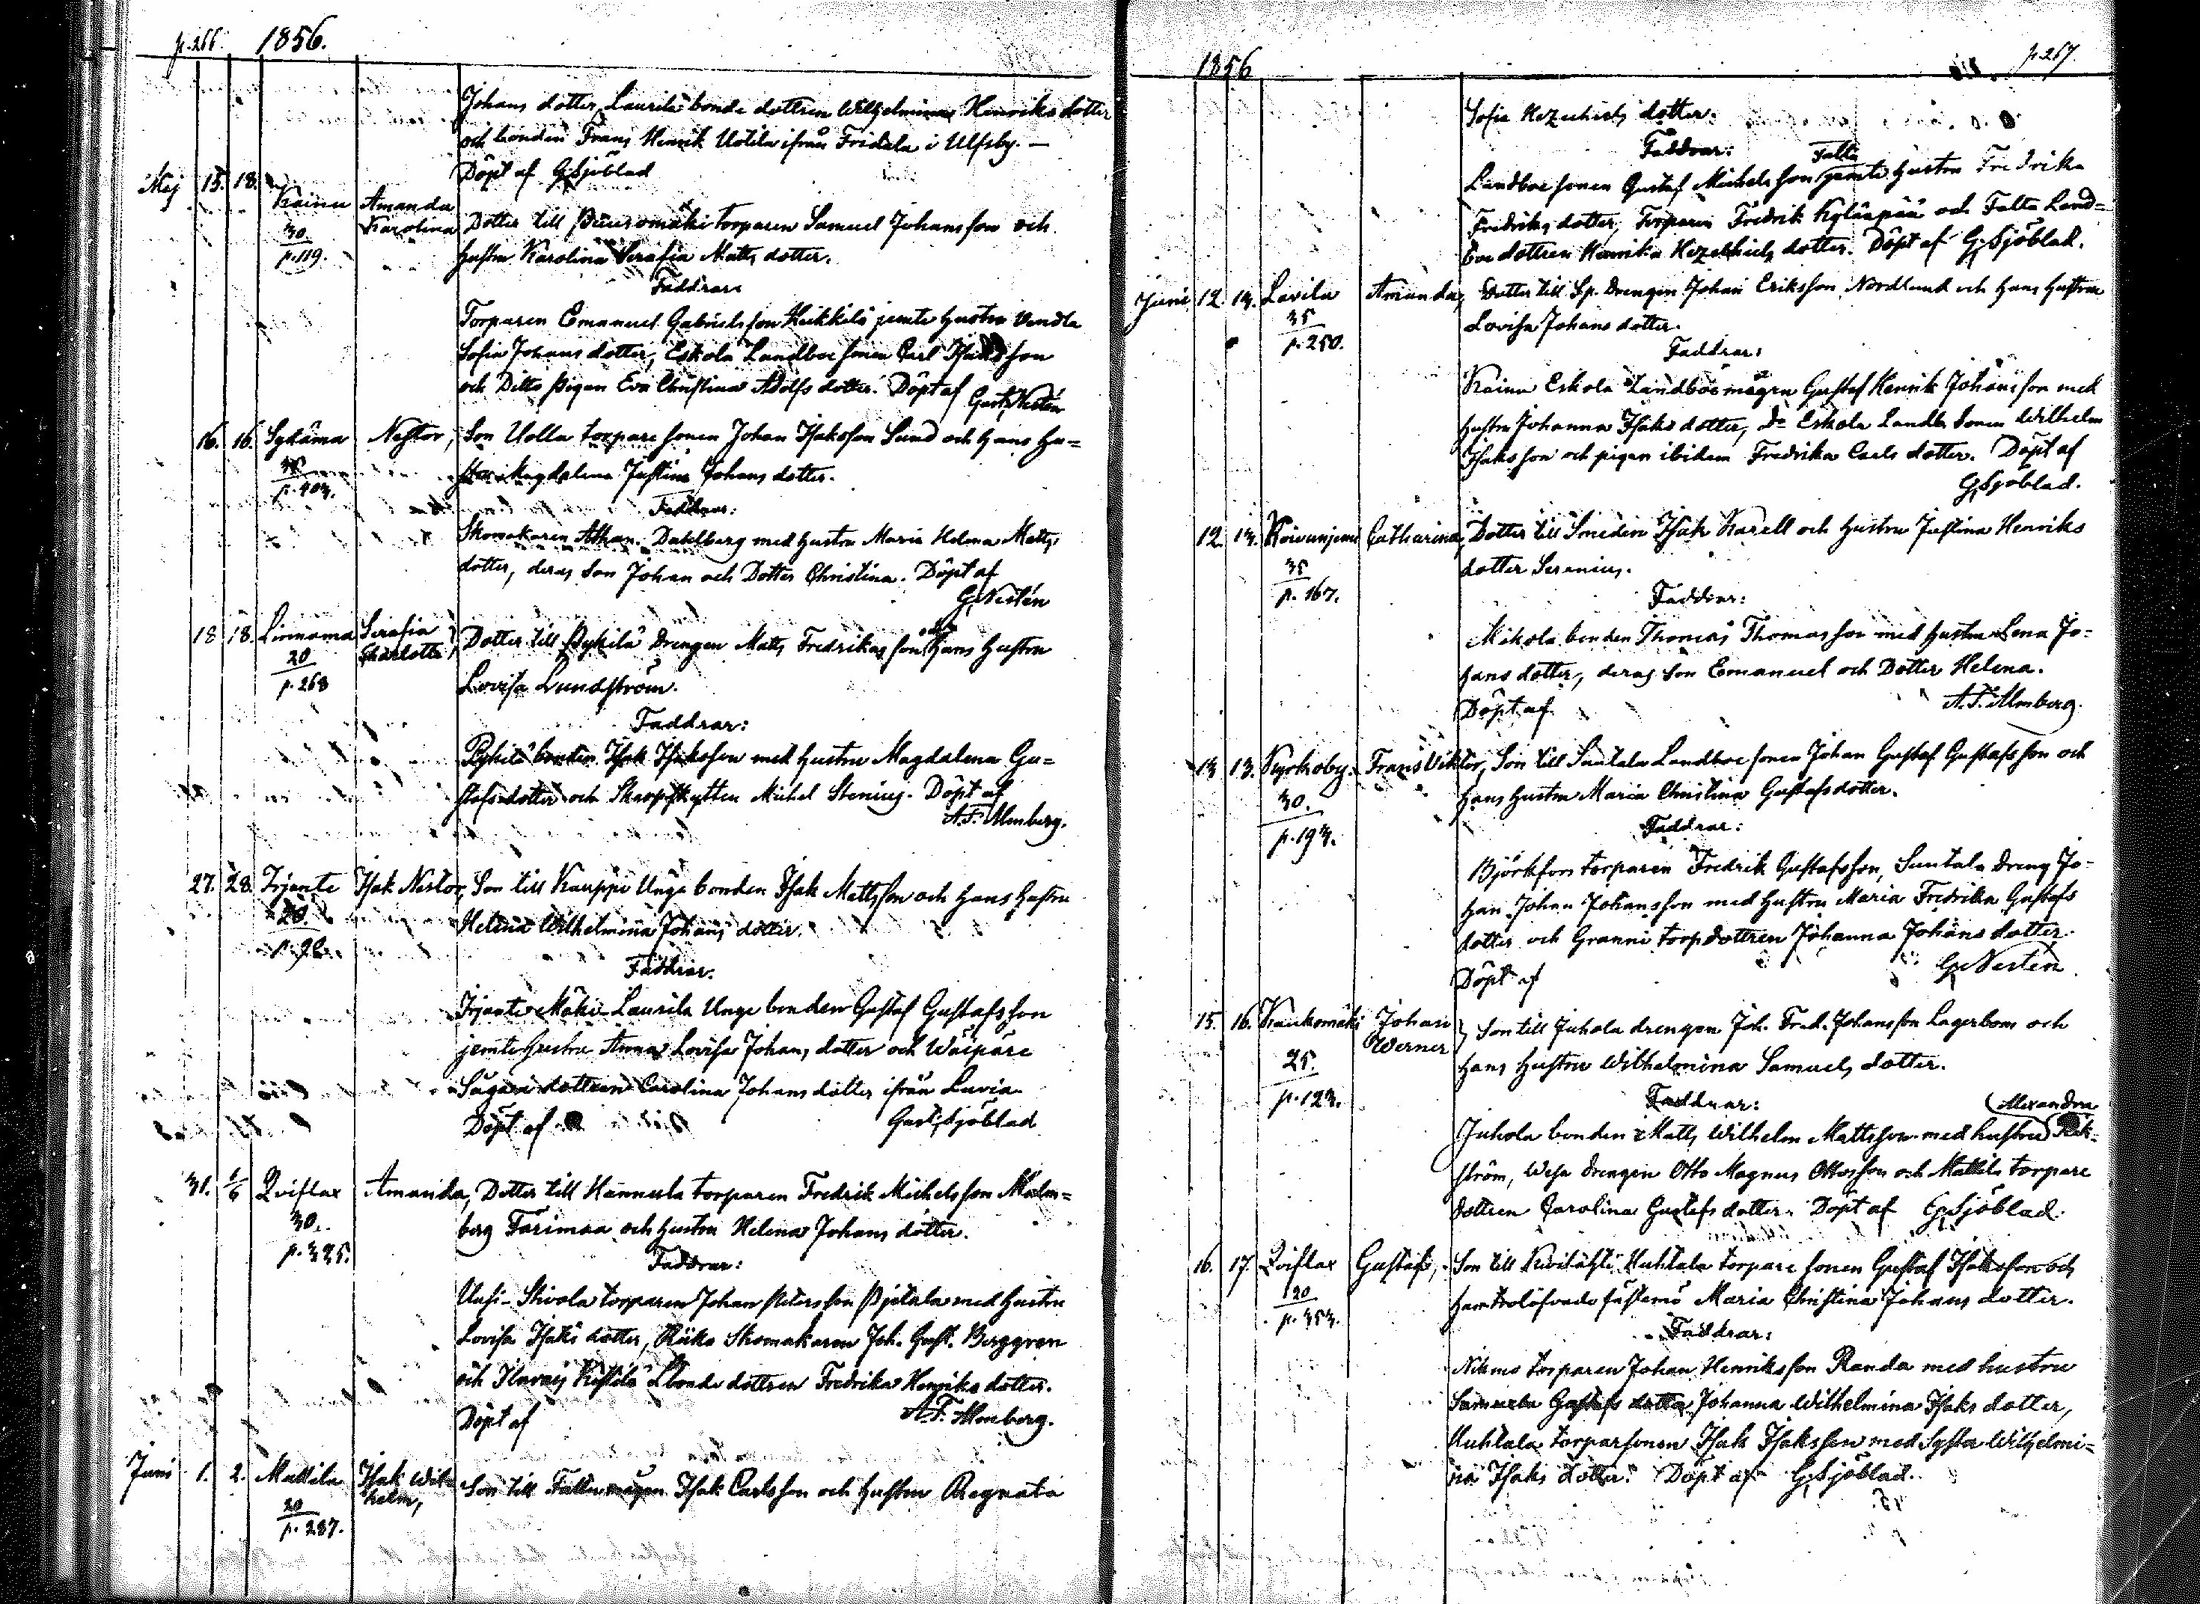 p.266. 1856.
Johans dotter, Laurila bonde dottren Wilhelmina Henriks dotter
och bonden Frans Henrik Uotila ifrån Fridala i Ulfsby. —
Döpt af G. Sjöblad
Maj 15. 18. Kainu Amanda
Karolina
30
p.119.
Dotter till torparen Samuel Johansson och
hustru Karolina Serafia Matts dotter.
Faddrar:
Torparen Emanuel Gabrielsson Heikkilä jemte hustru Vendla
Sofia Johans dotter, Eskola Landboe sonen Carl Isaksson
och Ditto pigan Eva Christina Adolfs dotter. Döpt af
Gust. Nestén
16. 16. Sydämä Nestor, Son Uolla torpare sonen Johan Isaksson Sund och hans hu-
35
p. 403.
stru Magdalena Justina Johans dotter.
Faddrar:
Skomakaren Athan. Dahlberg med hustru Maria Helena Matts
dotter, deras Son Johan och Dotter Christina. Döpt af
G. Nestén
18 18. Linnama Serafia
Charlotta,
20
p. 268
Dotter till Pykilä drengen Matts Fredriksson och hans hustru
Lovisa Lundström.
Faddrar:
Pykilä bonden Isak Isaksson med hustru Magdalena Gu-
stafs dotter och Skarpskytten Michel Stenius. Döpt af
A.F. Almberg.
27. 28. Irjante Isak Nestor, Son till Kauppi Unge bonden Isak Mattsson och hans hustru
20
Helena Wilhelmina Johans dotter.
Faddrar.
Irjante Mäki-Laurila Unge bonden Gustaf Gustafsson
jemte hustru Anna Lovisa Johans dotter och
dottren Carolina Johans dotter ifrån Luvia
Döpt af Gust. Sjöblad
31. 1/6 Qviflax Amanda, Dotter till Hannula torparen Fredrik Michelsson Malm-
30.
p. 325.
berg Farimaa och hustru Helena Johans dotter.
Faddrar:
Uusi-Skivola torparen Johan Petersson Pjetala med hustru
Lovisa Isaks dotter, Skomakaren Joh. Gust. Berggren
och dottren Fredrika Henriks dotter.
Döpt af A.F. Almberg.
Juni 1. 2. Mattila Isak Wil-
helm,
20
p. 287.
Son till Falta Isak Carlsson och hustru Regnata
1856 p.267.
Sofia Hezechiels dotter.
Faddrar:
Falta
Landboe sonen Gustaf Michelsson jemte hustru Fredrika
Fredriks dotter, Torparen Fredrik Kylänpää och Falta Land-
boe dottren Henrika Hezechiels dotter. Döpt af G. Sjöblad.
Juni 12. 14. Lavila Amanda, Dotter till Sp. drengen Johan Eriksson Nordlund och hans hustru
35
p. 250.
Lovisa Johans dotter.
Faddrar:
Kainu Eskola Landboe mågen Gustaf Henrik Johansson med
hustru Johanna Isaks dotter, Do Eskola Landb. Sonen Wilhelm
Isaksson och pigan ibidem Fredrika Carls dotter. Döpt af
G. Sjöblad.
12. 14. Koivunjemi Catharina, Dotter till Smeden Isak Karell och hustru Justina Henriks
35
p. 167.
dotter Serenius.
Faddrar:
Mikola bonden Thomas Thomasson med hustru Lena Jo-
hans dotter, deras Son Emanuel och Dotter Helena.
Döpt af A.F. Almberg.
13 13. Kyrkoby. Frans Viktor, Son till Suntala Landboe sonen Johan Gustaf Gustafsson och
30.
p. 193.
hans hustru Maria Christina Gustafs dotter.
Faddrar:
Björkfors torparen Fredrik Gustafsson, Suntala dreng Jo-
han Johan Johansson med hustru Maria Fredrika Gustafs
dotter och Granni torpdottren Johanna Johans dotter.
Döpt af G. Nestén
15. 16. Kaukomäki Johan
Werner
25.
p. 123.
Son till Juhola drengen Joh. Fred. Johansson Lagerbom och
hans hustru Wilhelmina Samuels dotter.
Faddrar:
Alexandra
Juhola bonden Matts Wilhelm Mattsson med hustru Rik-
ström, drengen Otto Magnus Ottosson och Mattila torpare
dottren Carolina Gustafs dotter. Döpt af G. Sjöblad.
16. 17. Qviflax Gustafs, Son till Kuhtala torpare sonen Gustaf Isaksson och
20
p. 353.
hans trolofvade fästemö Maria Christina Johans dotter.
Faddrar:
torparen Johan Henriksson Randa med hustru
Gustafs dotter Johanna Wilhelmina Isaks dotter,
Kuhtala torparsonen Isak Isaksson med Syster Wilhelmi-
na Isaks dotter. Döpt af G. Sjöblad.